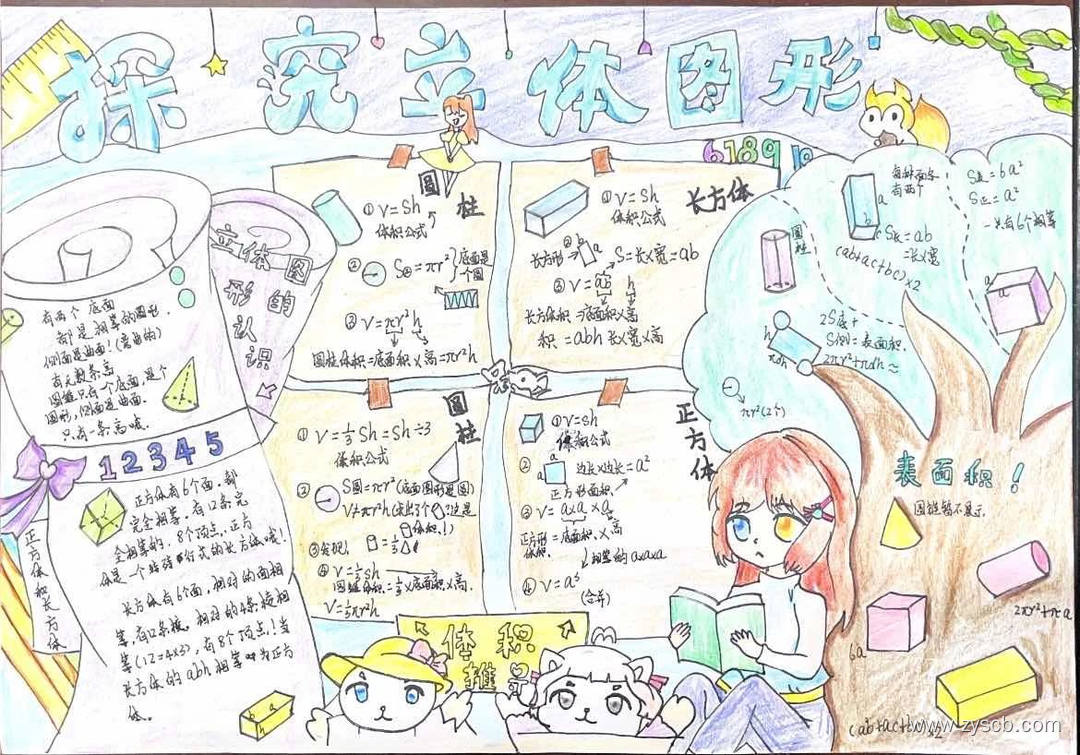 探究立体图形
6789 10
立体图
形的
认识
有两个底面
都是相等的圆形.
侧面是曲面!(弯曲的)
有无数条高
圆锥只有一个底面,是个
圆形,侧面是曲面.
只有一条高哦.
12345
正方体和长方体
正方体有6个面.都
完全相等.有12条完
全相等的.8个顶点.正方
体是一个特殊 形式的长方体哦!
长方体有6个面,相对的面相
等.有12条棱.相对的4条棱相
等(12=4×3).有8个顶点!当
长方体的abh相等 为正方
体.
b a
h
圆柱
①V=Sh
体积公式
② S圆=πr²
底面是
一个圆
③V=πr²h
圆柱体积=底面积×高=πr²h
长方体
①V=Sh
体积公式
②
长方形
b a
S=长×宽=ab
③V=ab h
长方体积=底面积×高
积=abh 长×宽×高
圆柱
①V=⅓Sh=Sh÷3
体积公式
② S圆=πr²(底面图形是圆)
体积!)
③发现!
=⅓
④V=⅓sh
圆锥体积=⅓×底面积×高.
V=⅓πr²h
正方体
①V=Sh
体积公式
②
a
a
边长×边长=a²
正方形面积.
③V=a×a×a
正方形=底面积×高
体积.
相等的a×a×a
④V=a³
(合并)
体积
推导
圆柱
每种面各
有两个
a
b
c
S底=ab
=长×宽
(ab+ac+bc)×2
S底=6a²
S正=a²
一共有6个相等
a
a
h
πdh
2S底+
S侧=表面积.
2πr²+πdh
πr²(2个)
表面积!
圆锥暂不展示.
6a
(ab+ac+bc)×2
www.zyscb.com